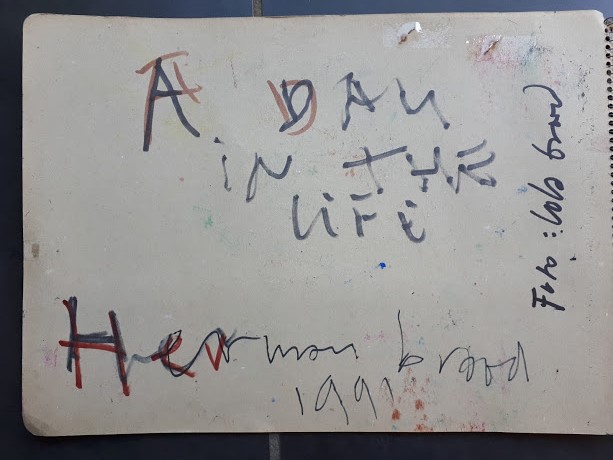 A DAY
IN THE
LIFE
Herman brood
1991
Foto: lola brood